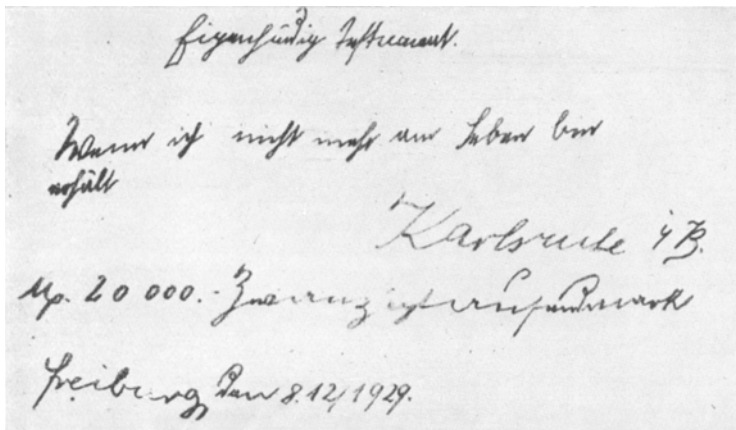 Eigenhändig Testament.
Wenn ich nicht mehr am Leben bin
erhält
Karlsruhe i/B.
Mk. 20 000.- Zwanzigtausendmark
Freiburg, den 8.12/1929.